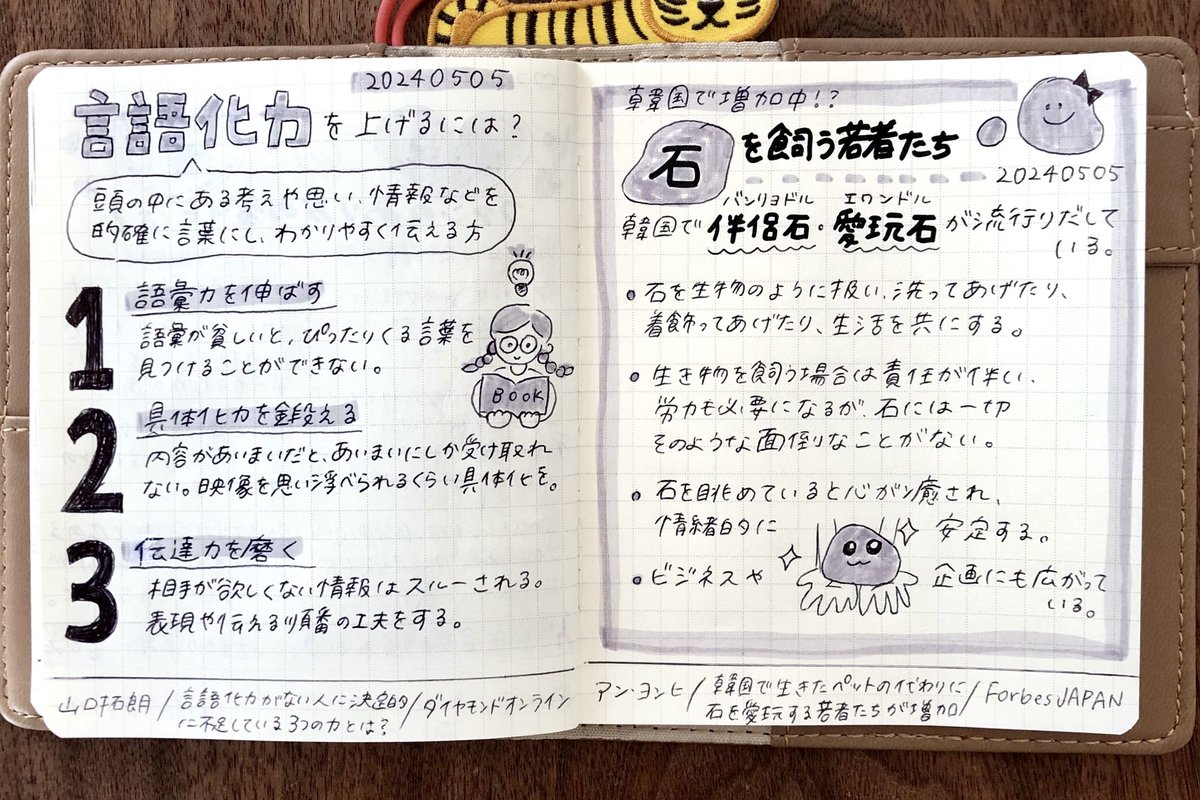 20240505
言語化力を上げるには?
頭の中にある考えや思い、情報などを
的確に言葉にし、わかりやすく伝える方
1 語彙力を伸ばす
語彙が貧しいと、ぴったりくる言葉を
見つけることができない。
BOOK
2 具体化力を鍛える
内容があいまいだと、あいまいにしか受け取れ
ない。映像を思い浮べられるくらい具体化を。
3 伝達力を磨く
相手が欲しくない情報はスルーされる。
表現や伝える順番の工夫をする。
山口拓朗/言語化力がない人に決定的
に不足している3つの力とは?/ダイヤモンドオンライン
韓国で増加中!?
石を飼う若者たち
20240505
バンリョドル エワンドル
韓国で伴侶石・愛玩石が流行りだして
いる。
• 石を生物のように扱い、洗ってあげたり、
着飾ってあげたり、生活を共にする。
• 生き物を飼う場合は責任が伴い、
労力も必要になるが、石には一切
そのような面倒なことがない。
• 石を眺めていると心が癒され、
情緒的に安定する。
• ビジネスや企画にも広がって
いる。
アン・ヨンヒ/韓国で生きたペットの代わりに
石を愛玩する若者たちが増加/Forbes JAPAN